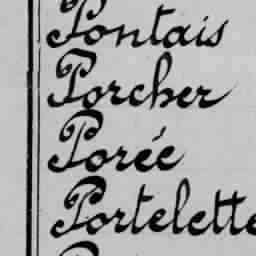 Pontais
Porcher
Porée
Portelette